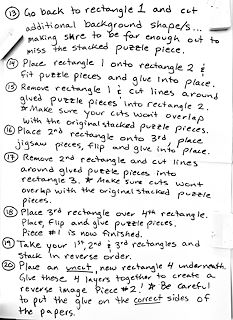 ⑬ Go back to rectangle 1 and cut
additional background shape/s...
making sure to be far enough out to
miss the stacked puzzle piece.
⑭ Place rectangle 1 onto rectangle 2 &
fit puzzle pieces and glue into place.
⑮ Remove rectangle 1 & cut lines around
glued puzzle pieces into rectangle 2.
* Make sure your cuts won't overlap
with the original stacked puzzle pieces.
⑯ Place 2nd rectangle onto 3rd place
jigsaw pieces, flip and glue into place.
⑰ Remove 2nd rectangle and cut lines
around glued puzzle pieces into
rectangle 3. * Make sure cuts won't
overlap with the original stacked puzzle
pieces.
⑱ Place 3rd rectangle over 4th rectangle.
Place, flip and glue puzzle pieces.
Piece #1 is now finished.
⑲ Take your 1st, 2nd & 3rd rectangles and
stack in reverse order.
⑳ Place an uncut, new rectangle 4 underneath.
Glue these 4 layers together to create a
reverse image Piece #2! * Be careful
to put the glue on the correct sides of
the papers.